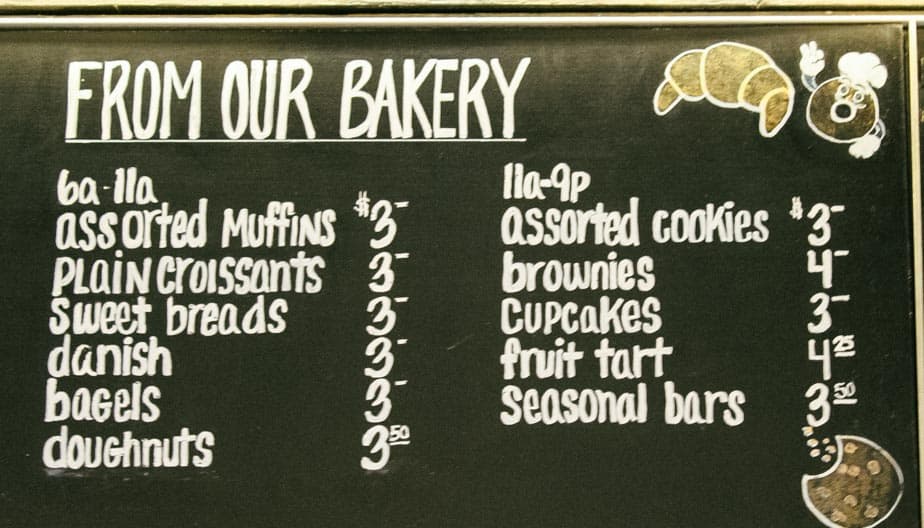 FROM OUR BAKERY
6a-11a
assorted MuffiNS $3-
PLaiN Croissants 3-
Sweet breads 3-
danish 3-
baGels 3-
douGhnuts 3 50
11a-9p
assorted cookies $3-
brownies 4-
CUPCaKes 3-
fruit tart 4 25
Seasonal bars 3 50